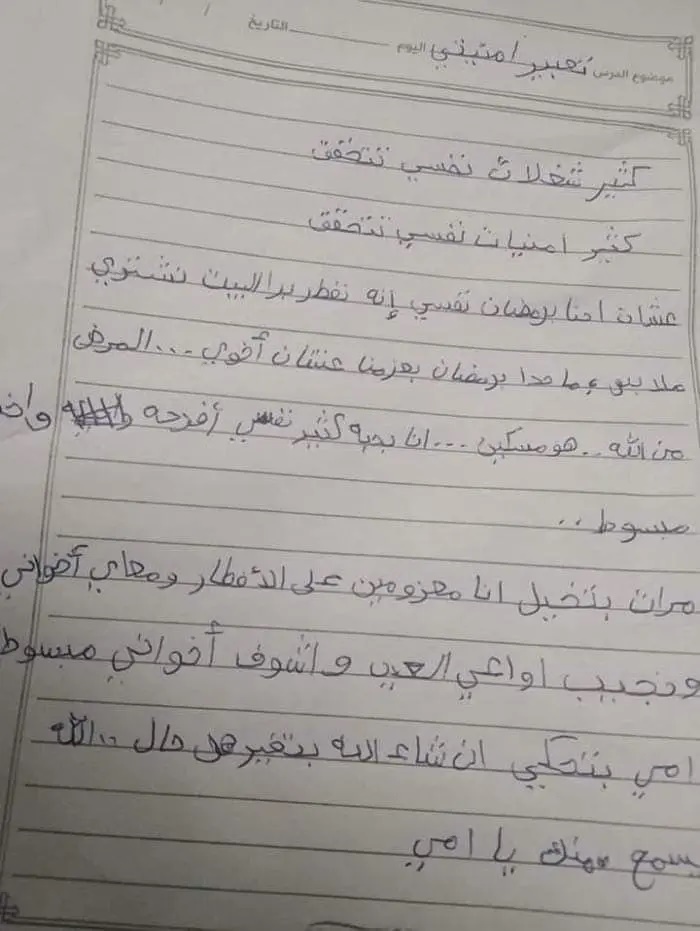 موضوع الدرس تعبير امتيني اليوم التاريخ / /
كثير شغلات نفسي تتحقق
كثير امنيات نفسي تتحقق
عشان احنا برمضان نفسي إنه نفطر برا البيت نشتري
ملابس وما حدا برمضان بعزمنا عشان أخوي ... المرض
من الله .. هو مسكين ... انا بحبه كثير نفسي أفرحه
مبسوط ..
مرات بتخيل انا معزومين على الأفطار ومعاي أخواني
ونجيب اواعي العيد واشوف أخواني مبسوط
امي بتحكي ان شاء الله بتغير هل حال .. الله
يسمع منك يا امي